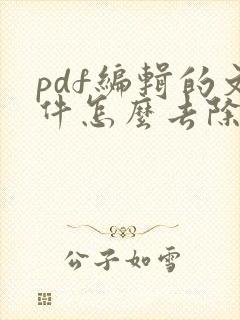 pdf编辑的文
件怎麼去除
公子如雪